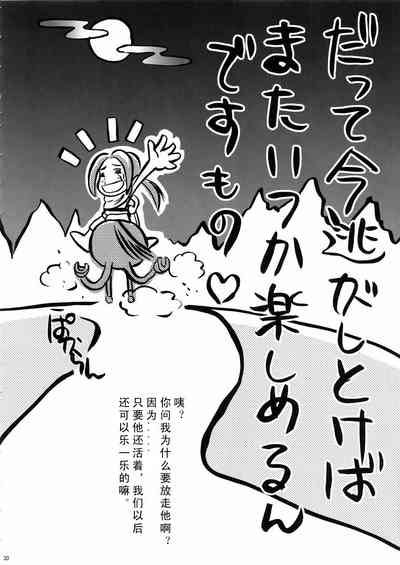 だって今逃がしとけば
またいつか楽しめるん
ですもの♡
ぱからん
咦？
你问我为什么要放走他啊？
因为....
只要他还活着，我们以后
还可以乐一乐的嘛。